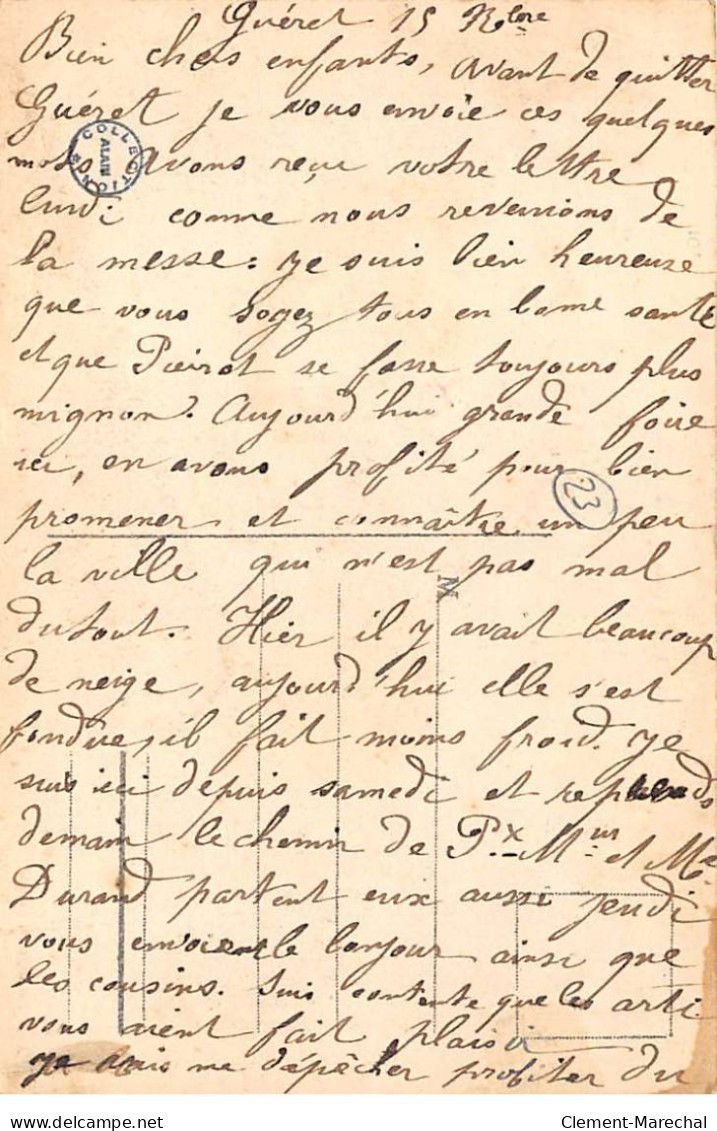 Guéret 15 Xbre
Bien chers enfants, avant de quitter
Guéret je vous envoie ces quelques
mots. Avons reçu votre lettre
lundi comme nous revenions de
la messe : je suis bien heureuse
que vous soyez tous en bonne santé
et que Pierrot se fasse toujours plus
mignon. Aujourd'hui grande foire
ici, en avons profité pour bien
promener et connaître un peu
la ville qui n'est pas mal
du tout. Hier il y avait beaucoup
de neige, aujourd'hui elle s'est
fondue, il fait moins froid. Je
suis ici depuis samedi et reprends
demain le chemin de Px. Mur et Me
Durand partent eux aussi jeudi
vous envoient le bonjour ainsi que
les cousins. Suis contente que les arti
vous aient fait plaisir
je vais me dépêcher profiter du
COLLECTIONS
ALAIN
23
M
Clement-Marechal